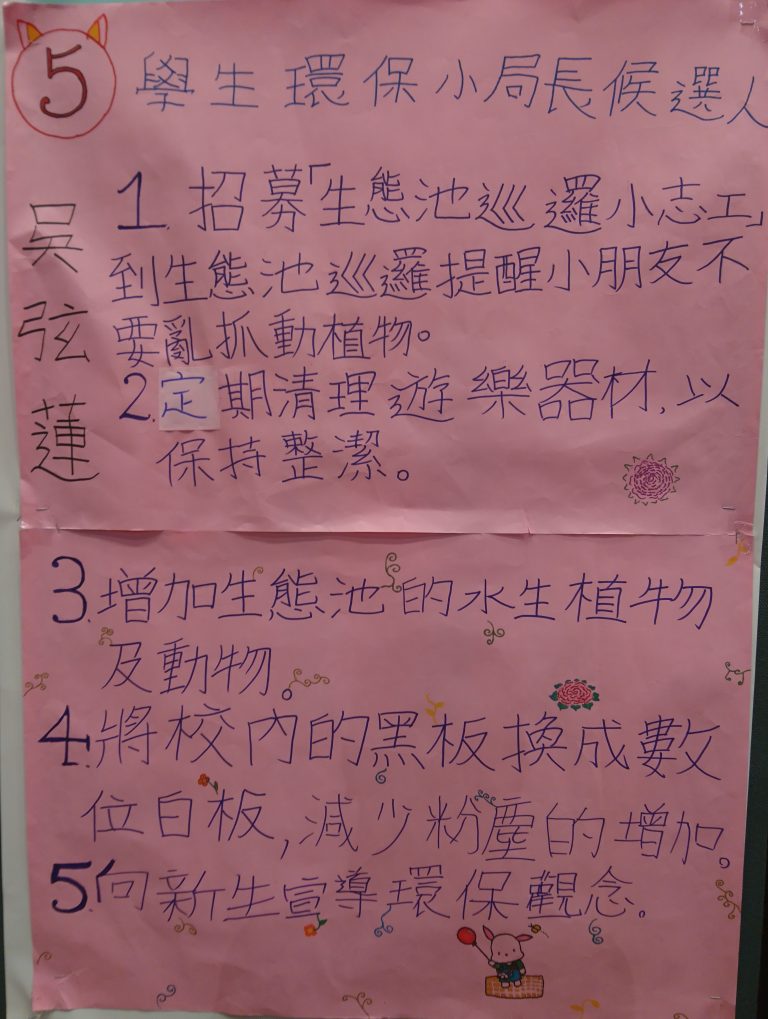 5 學生環保小局長候選人
吳弦蓮
1.招募「生態池巡邏小志工」
到生態池巡邏提醒小朋友不
要亂抓動植物。
2.定期清理遊樂器材,以
保持整潔。
3.增加生態池的水生植物
及動物。
4.將校內的黑板換成數
位白板,減少粉塵的增加。
5.向新生宣導環保觀念。